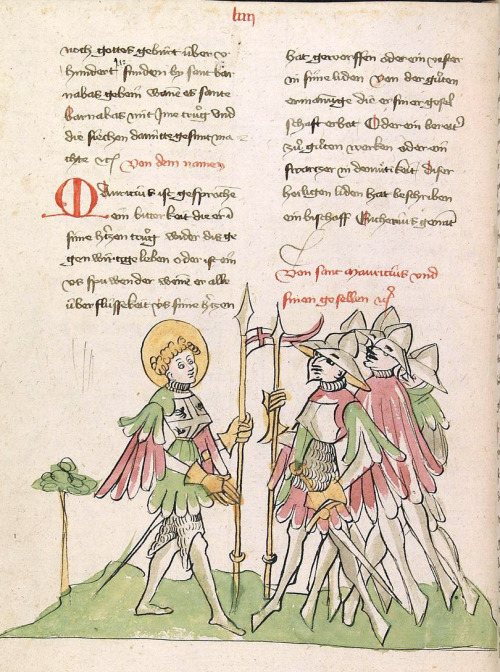 liiij
noch gottes gebürt über v
hundert finden by sant bar
nabas gebein wenn es sante
Barnabas mit Ime trůg vnd
die siechen damitte gesunt ma
chte rc Von dem namen
Mauricius ist gesprochen
ein bitterkeit die er in
sime hertzen trůg wider dis ge
gen wirttge leben oder ist ein
vs spuwender wenn er alle
überflüssekeit vs sime hertzen
hat geworffen oder ein vaster
in sime liden von der gůten
ermanunge die er siner gesel
schaft erbot Oder ein bereiter
zů gůten werken oder ein
swartzer in demütikeit Diser
heiligen liden hat beschriben
ein bischoff Eucherius genant
Von sant Mauricius vnd
sinen gesellen